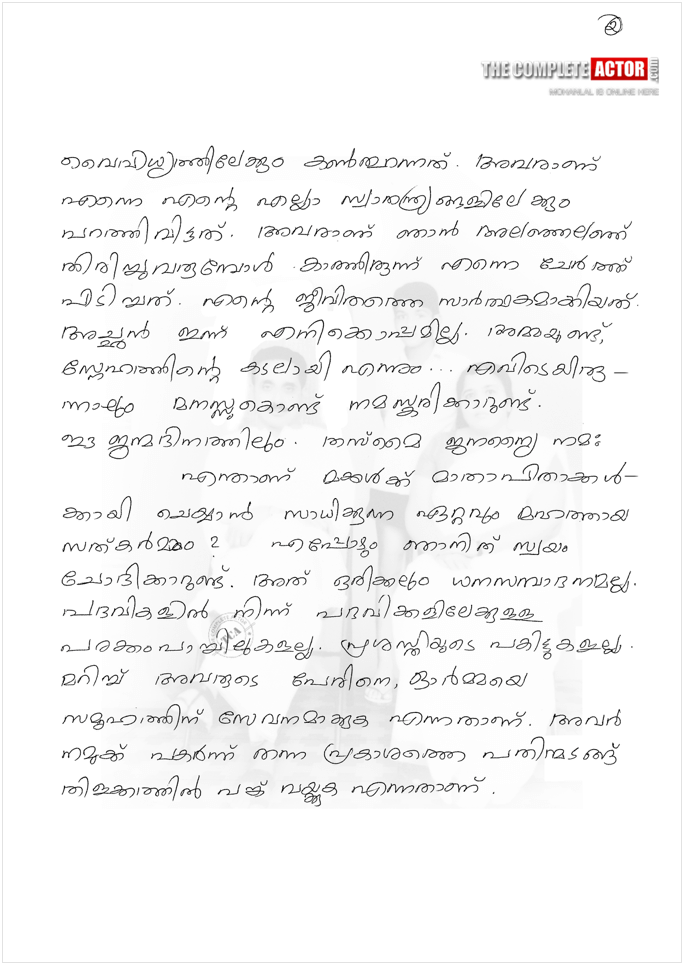 2
THE COMPLETE ACTOR .com
MOHANLAL IS ONLINE HERE
വൈവിധ്യത്തിലേക്കും കൺതുറന്നത്. അവരാണ്
എന്നെ എന്റെ എല്ലാ സ്വാതന്ത്ര്യങ്ങളിലേക്കും
പറത്തിവിട്ടത്. അവരാണ് ഞാൻ അലഞ്ഞലഞ്ഞ്
തിരിച്ചുവരുമ്പോൾ കാത്തിരുന്ന് എന്നെ ചേർത്ത്
പിടിച്ചത്. എന്റെ ജീവിതത്തെ സാർത്ഥകമാക്കിയത്.
അച്ഛൻ ഇന്ന് എനിക്കൊപ്പമില്ല. അമ്മയുണ്ട്,
സ്നേഹത്തിന്റെ കടലായി എന്നും... എവിടെയിരു–
ന്നാലും മനസ്സുകൊണ്ട് നമസ്കരിക്കാറുണ്ട്.
ഈ ജന്മദിനത്തിലും. തസ്മൈ ജനന്യൈ നമഃ
എന്താണ് മക്കൾക്ക് മാതാപിതാക്കൾ–
ക്കായി ചെയ്യാൻ സാധിക്കുന്ന ഏറ്റവും മഹത്തായ
സത്കർമ്മം? എപ്പോഴും ഞാനിത് സ്വയം
ചോദിക്കാറുണ്ട്. അത് ഒരിക്കലും ധനസമ്പാദനമല്ല.
പദവികളിൽ നിന്ന് പദവിക്കളിലേക്കുള്ള
പരക്കംപാച്ചിലുകളല്ല. പ്രശസ്തിയുടെ പകിട്ടുകളല്ല.
മറിച്ച് അവരുടെ പേരിനെ, ഓർമ്മയെ
സമൂഹത്തിന് സേവനമാക്കുക എന്നതാണ്. അവർ
നമുക്ക് പകർന്ന് തന്ന പ്രകാശത്തെ പതിന്മടങ്ങ്
തിളക്കത്തിൽ പങ്ക് വയ്ക്കുക എന്നതാണ്.